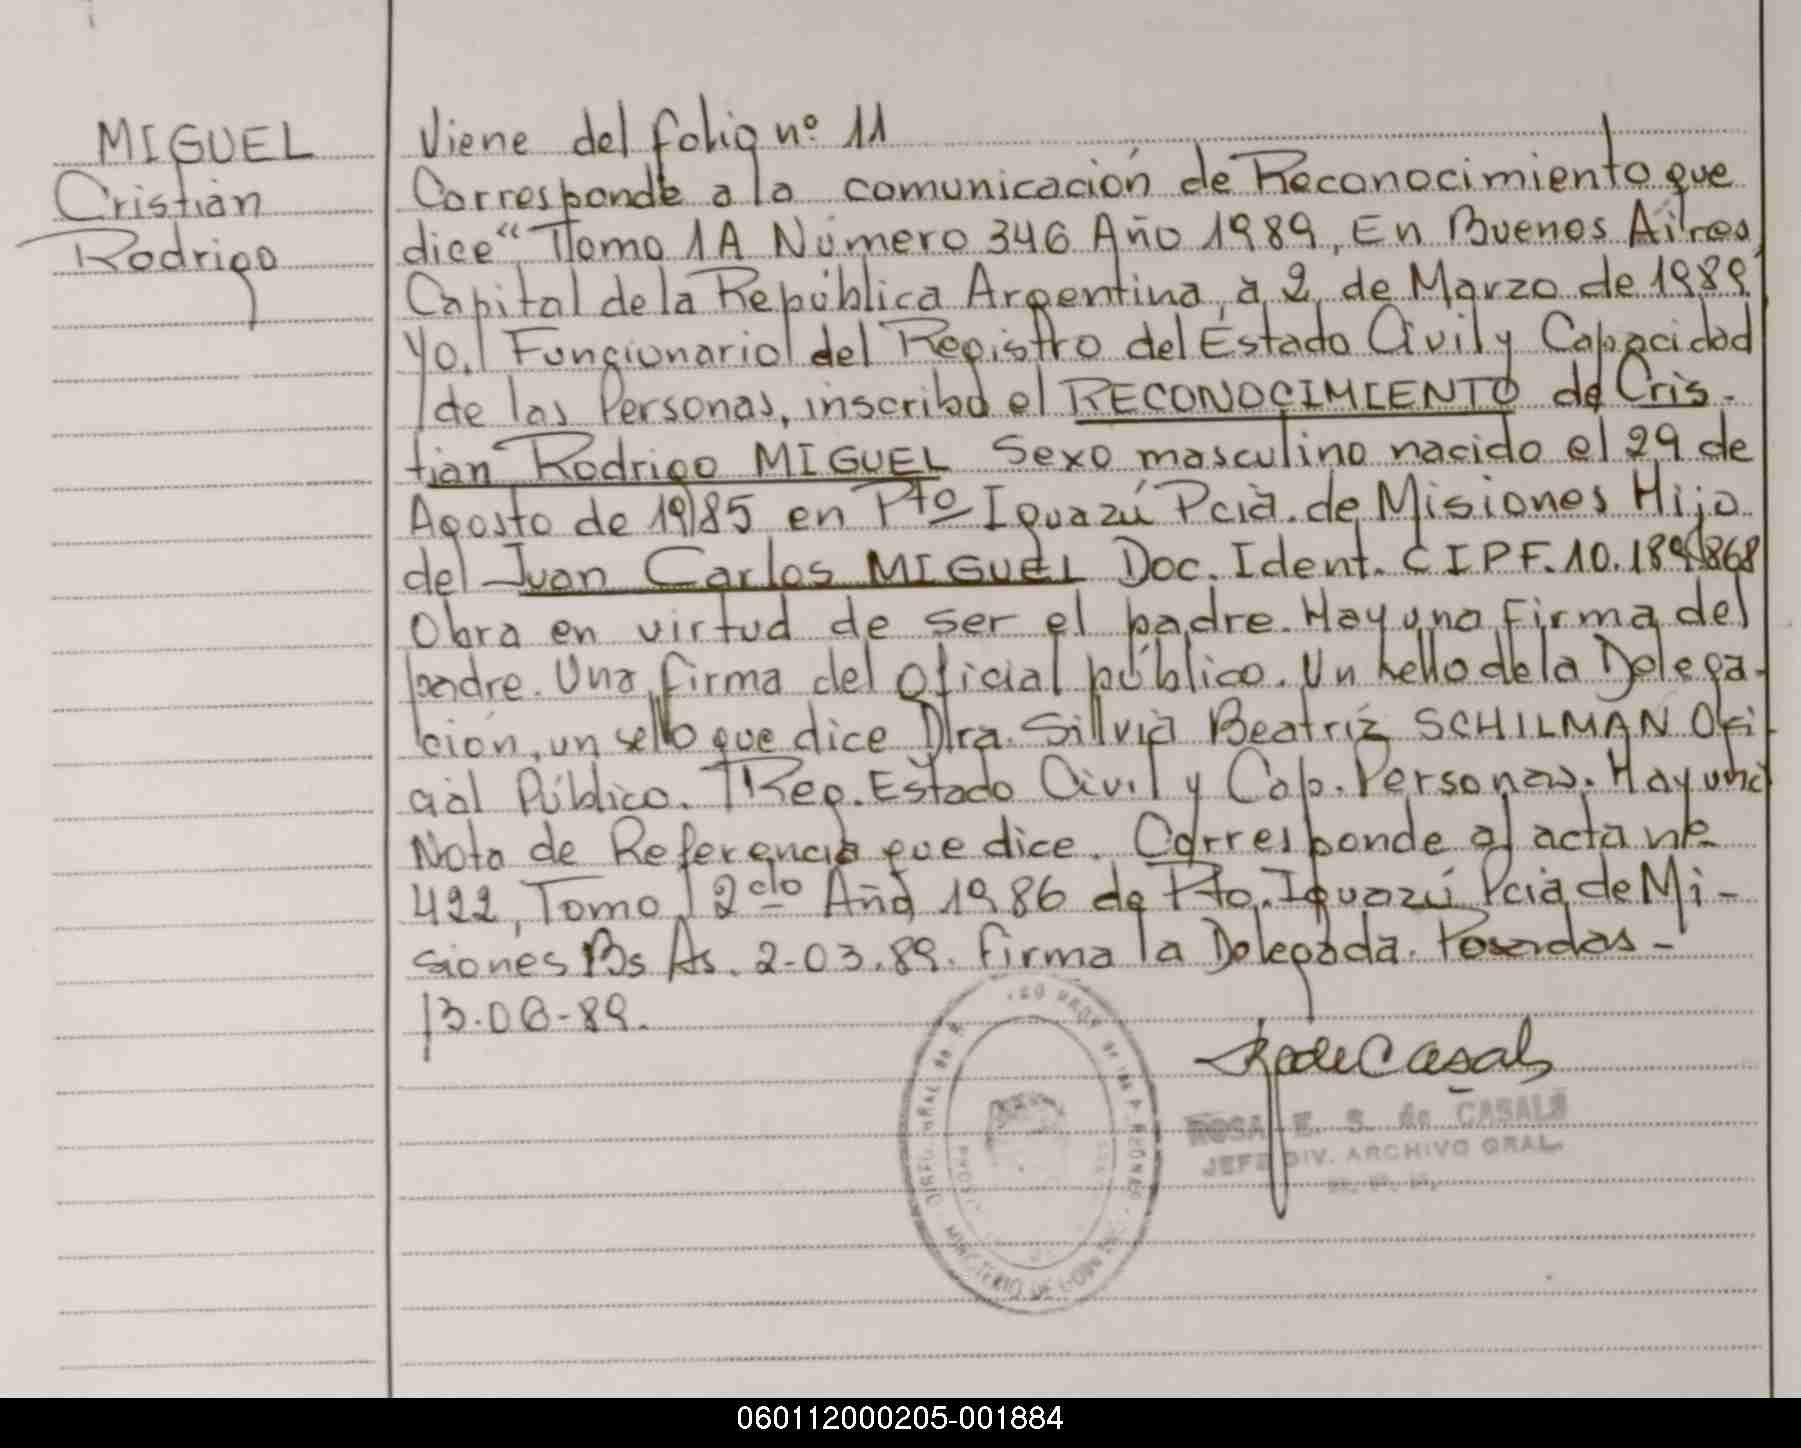 MIGUEL
Cristian
Rodrigo
Viene del folio nº 11
Corresponde a la comunicación de Reconocimiento que
dice "Tomo 1A Número 346 Año 1989, En Buenos Aires
Capital de la República Argentina, a 2, de Marzo de 1989
Yo, Funcionario del Registro del Estado Civil y Capacidad
de las Personas, inscribo el RECONOCIMIENTO de Cris-
tian Rodrigo MIGUEL Sexo masculino nacido el 29 de
Agosto de 1985 en Pto Iguazú Pcia. de Misiones Hijo
de Juan Carlos MIGUEL Doc. Ident. CIPF. 10.189.868
Obra en virtud de ser el padre. Hay una Firma del
padre. Una firma del oficial público. Un sello de la Delega-
ción, un sello que dice Dra. Silvia Beatriz SCHILMAN Ofi-
cial Público. Reg. Estado Civil y Cap. Personas. Hay una
Nota de Referencia que dice. Corresponde al acta nº
422, Tomo 2do Año 1986 de Pto. Iguazú Pcia de Mi-
siones Bs As. 2-03.89. Firma la Delegada. Posadas-
13.06-89.
ROSA E. S. de CASALS
JEFE DIV. ARCHIVO GRAL.
060112000205-001884